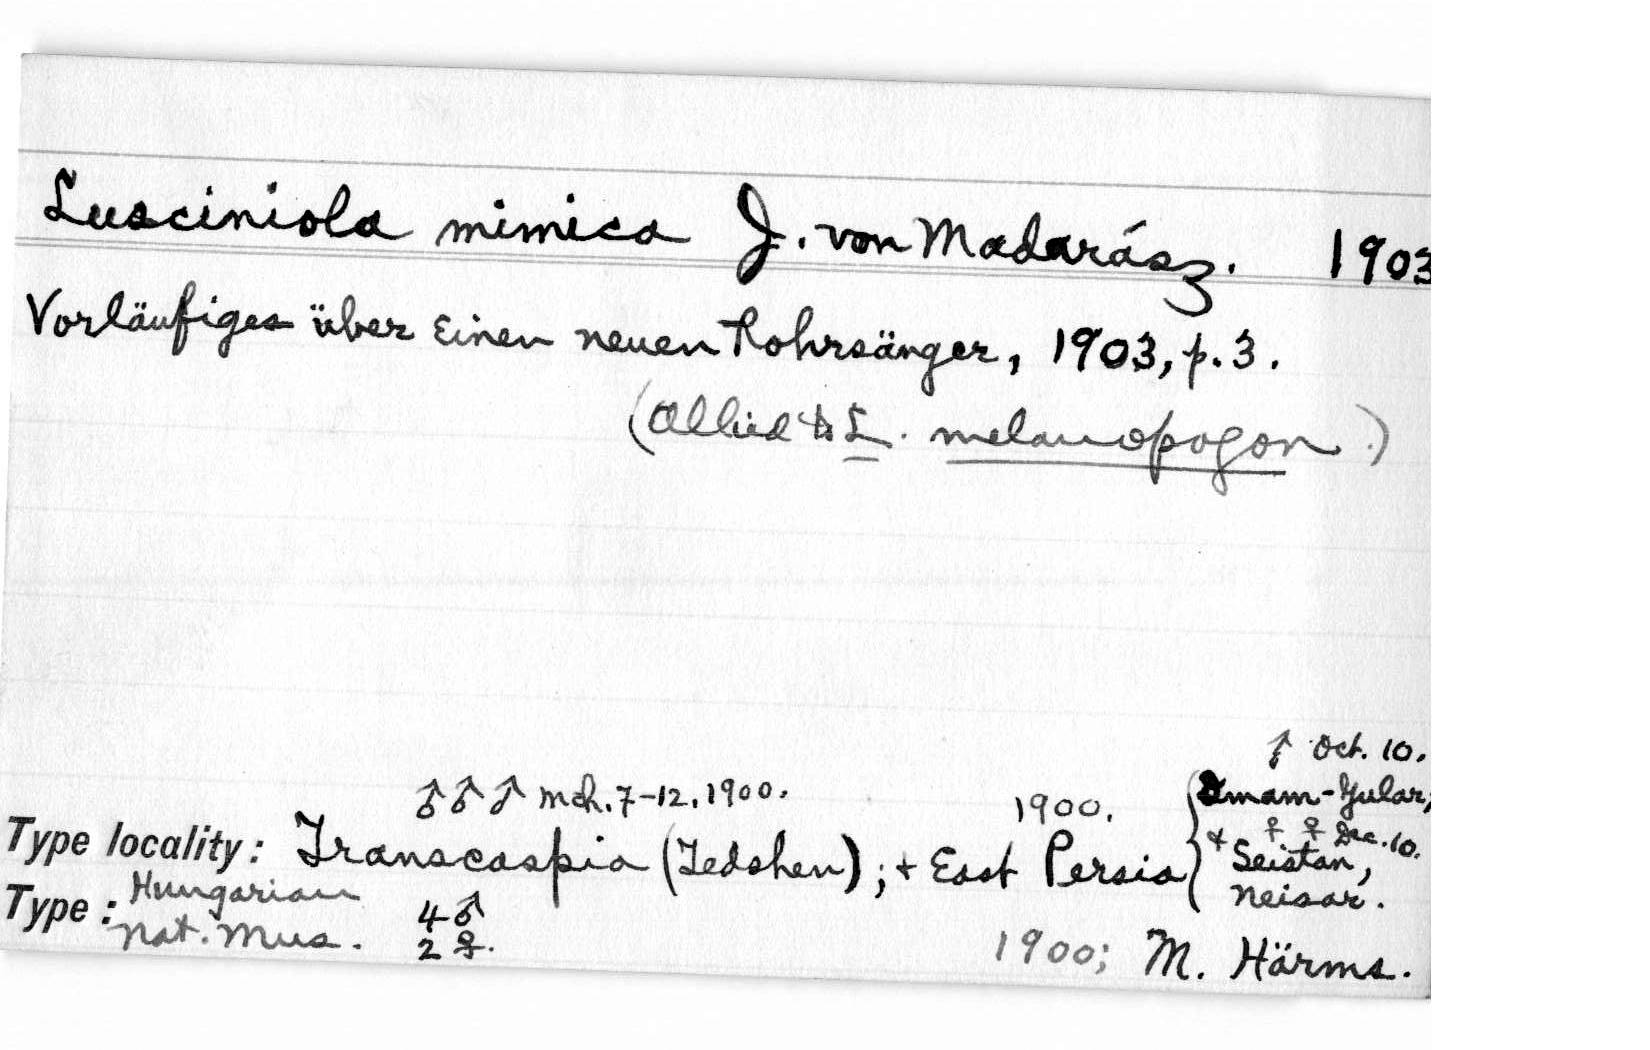 Lusciniola mimica J. von Madarász. 1903
Vorläufiges über Einen neuen Rohrsänger, 1903, p. 3.
(Allied to L. melanopogon.)
♂ Oct. 10.
♂♂♂ Mch. 7-12, 1900. 1900. Imam-Yular,
♀ ♀ Dec. 10.
Type locality: Transcaspia (Tedshen); + East Persia + Seistan,
Neisar.
Type: Hungarian
Nat. Mus. 4♂
2 ♀. 1900; M. Härms.